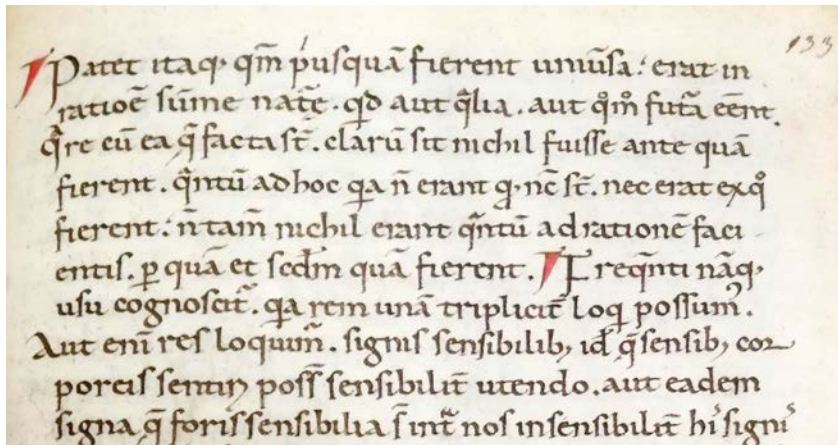 133
Patet itaq; qm̄ p'usquā fierent uniũsa: erat in
ratioē sũme nat̃ę. qđ aut q̃lia. aut q̊m̊ fut̃a eēnt.
q̃re cũ ea q̃ facta st̄. clarũ sit nichil fuisse ante quā
fierent. q̃ntũ ad hoc q̃a n̄ erant q; nc̄ st̄. nec erat ex q̊
fierent: n̄ tam̄ nichil erant q̃ntũ ad rationē faci
entis. ꝑ quā et scđm quā fierent. Freq̃nti nāq;
usu cognoscit̃. q̃a rem unā triplicit̄ loqi possum⁹.
Aut eni res loquim̃. signis sensibilib; id ̃ q̃ sensib; cor
poreis sentiri poss̄ sensibilit̄ utendo. aut eadem
signa q̃ foris sensibilia s̄ int̃ nos insensibilit̄ his signis